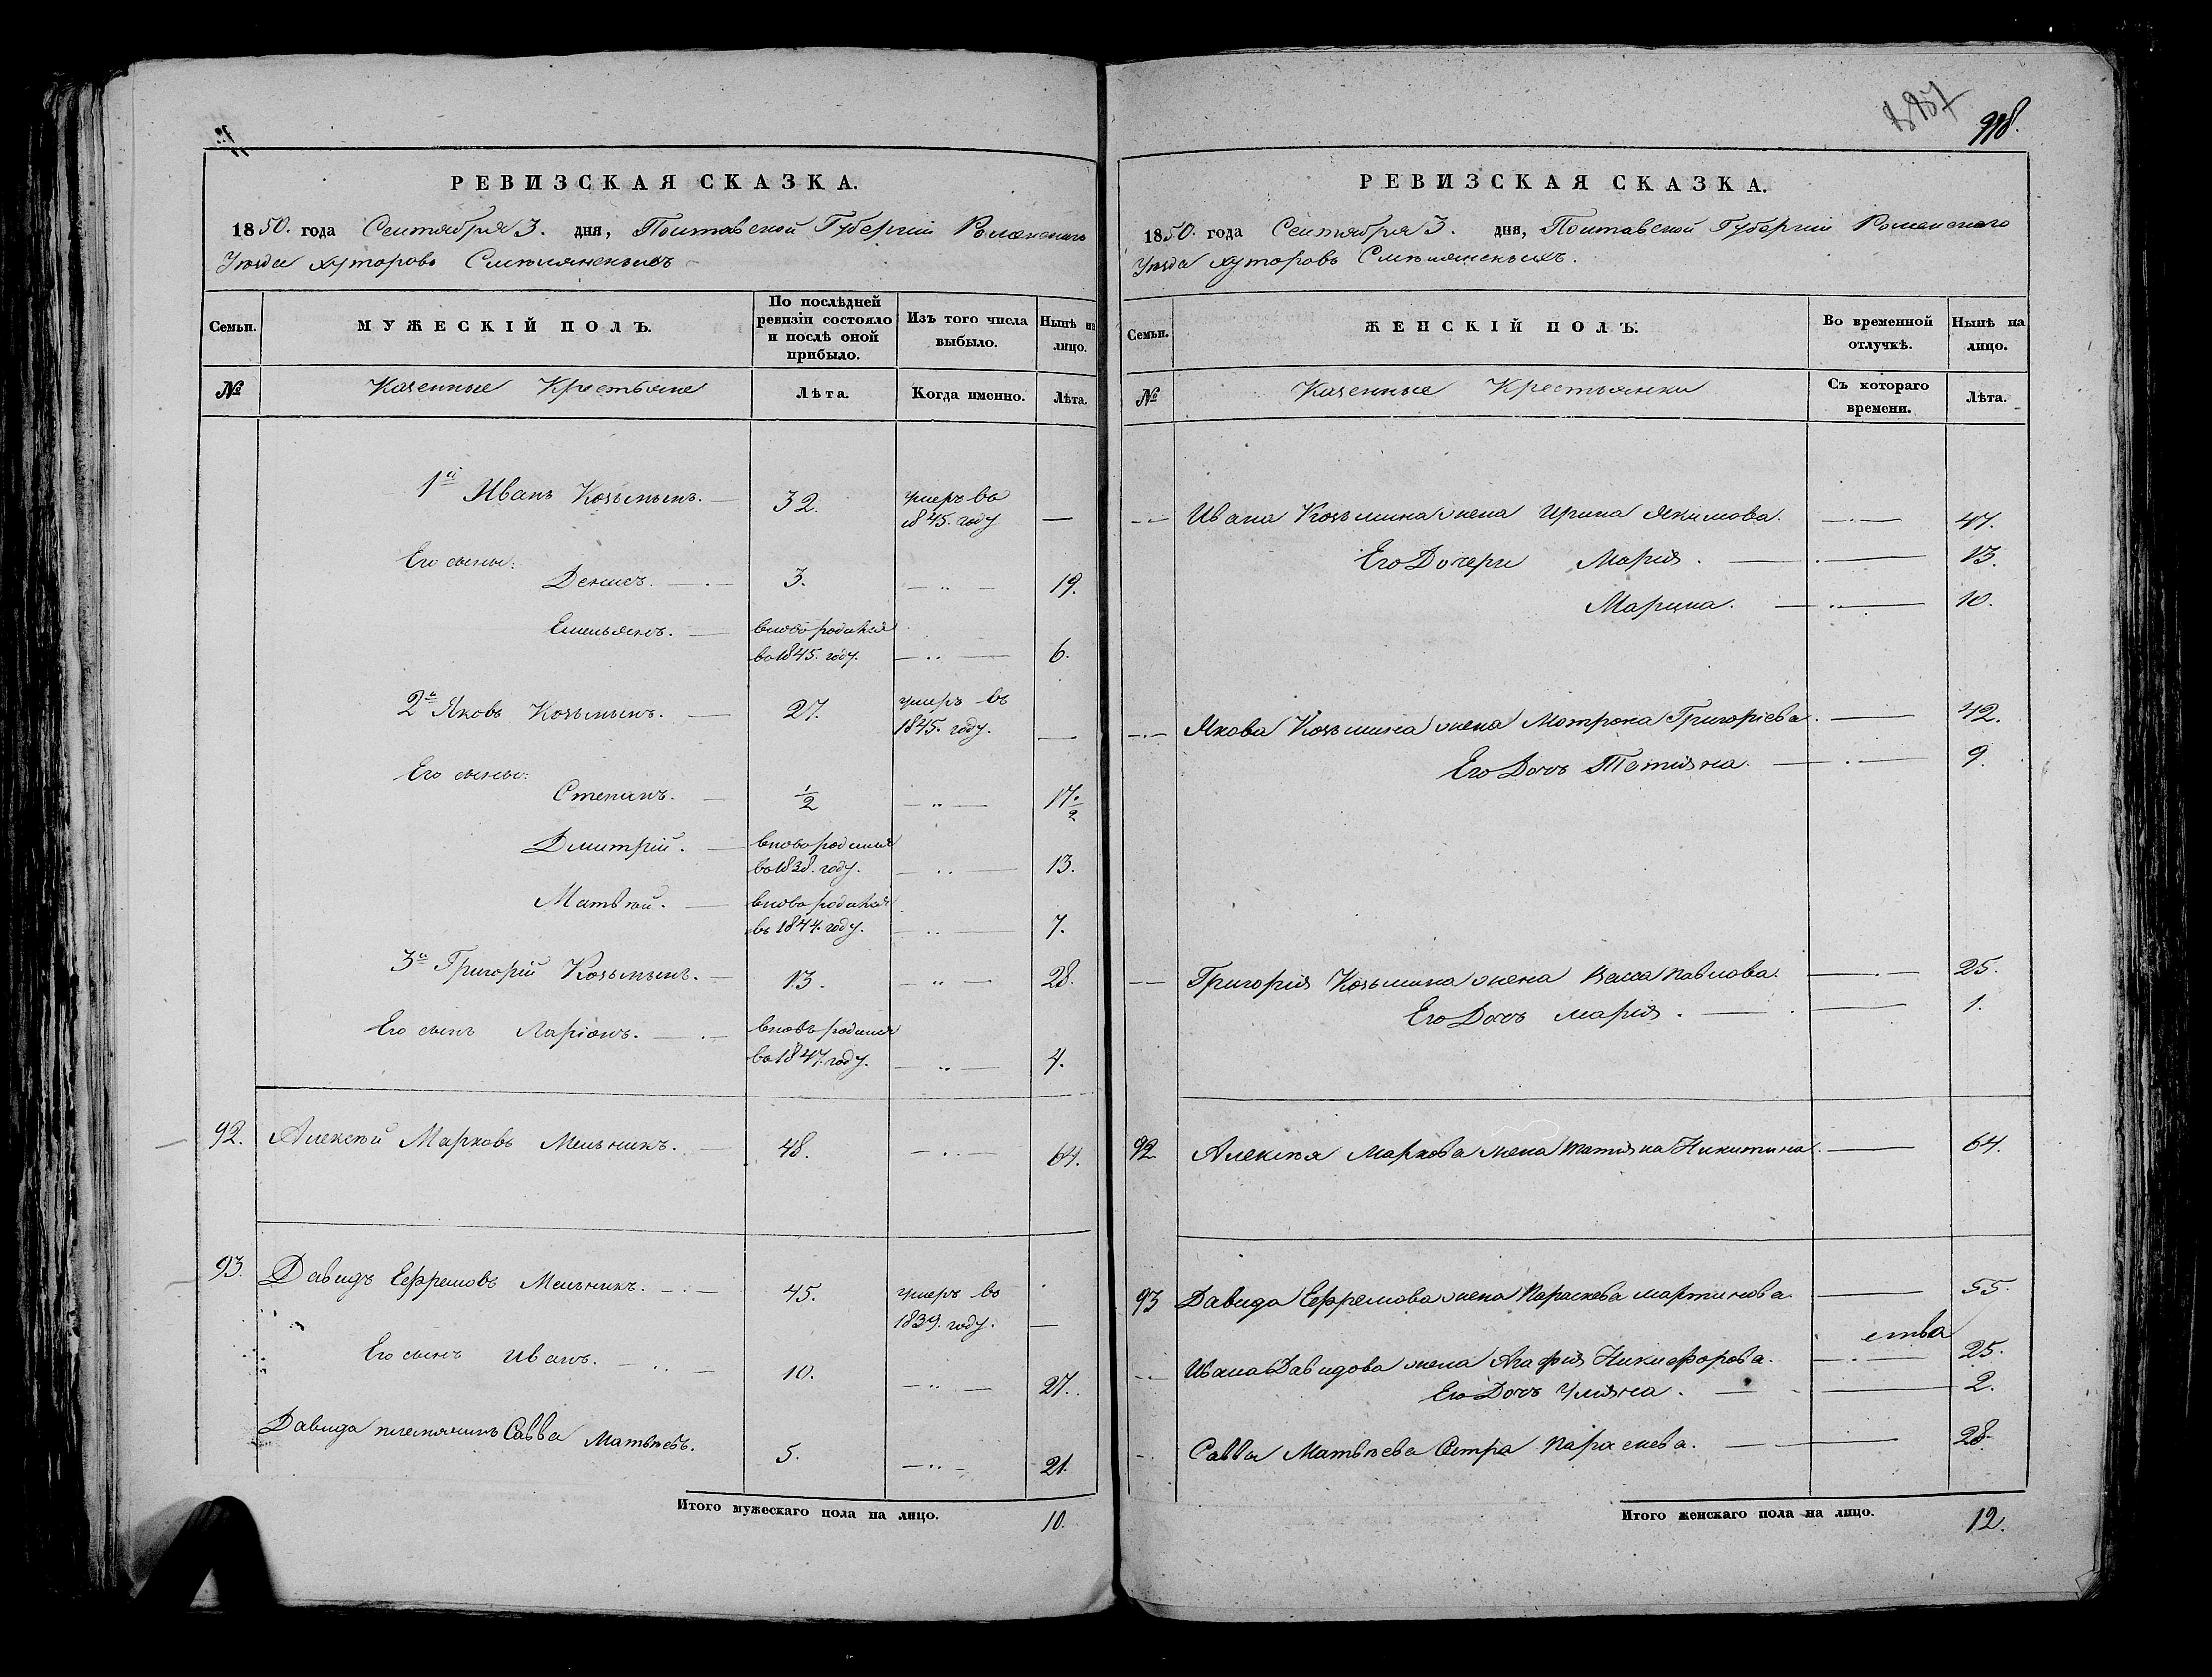 РЕВИЗСКАЯ СКАЗКА.
1850. года Сентября 3. дня, Полтавской Губерніи Роменскаго
Уѣзда хуторовъ Смѣлянскихъ
Семьи.
МУЖЕСКІЙ ПОЛЪ.
По послѣдней ревизіи состояло и послѣ оной прибыло.
Изъ того числа выбыло.
Нынѣ на лицо.
№
Казенные Крестьяне
Лѣта.
Когда именно.
Лѣта.
1й Иванъ Козьминъ. 32. умеръ во
1845. году
Его сыны:
Денисъ. 3. 19.
Емельянъ. вновь родился
во 1845. году. 6.
2й Яковъ Козьминъ. 27. умеръ въ
1845. году.
Его сыны:
Степанъ. 1/2 17 1/2
Дмитрій. вновь родился
во 1838. году. 13.
Матвѣй. вновь родился
въ 1844. году. 7.
3й Григорій Козьминъ. 13. 28.
Его сынъ Ларіонъ. вновь родился
во 1847. году. 4.
92. Алексѣй Марковъ Мельникъ. 48. 64.
93. Давидъ Ефремовъ Мельникъ. 45. умеръ въ
1839. году.
Его сынъ Иванъ. 10. 27.
Давида племянникъ Савва Матвѣевъ. 5. 21.
Итого мужескаго пола на лицо. 10.
918.
РЕВИЗСКАЯ СКАЗКА.
1850. года Сентября 3. дня, Полтавской Губерніи Роменскаго
Уѣзда хуторовъ Смѣлянскихъ.
Семьи.
ЖЕНСКІЙ ПОЛЪ.
Во временной отлучкѣ.
Нынѣ на лицо.
№
Казенные Крестьянки
Съ котораго времени.
Лѣта.
Ивана Козьмина жена Ирина Якимова. 47.
Его Дочери Марія. 13.
Марина. 10.
Якова Козьмина жена Мотрона Григоріева. 42.
Его Дочь Татіяна. 9.
Григорія Козьмина жена Васса Павлова. 25.
Его Дочь Марія. 1.
92 Алексѣя Маркова жена Татіяна Никитина. 64.
93 Давида Ефремова жена Параскева Мартинова. 55.
Ивана Давидова жена Агафія Никифорова. 25.
Его Дочь Уліяна. 2.
Савва Матвѣева Сестра Параскева. 28.
Итого женскаго пола на лицо. 12.